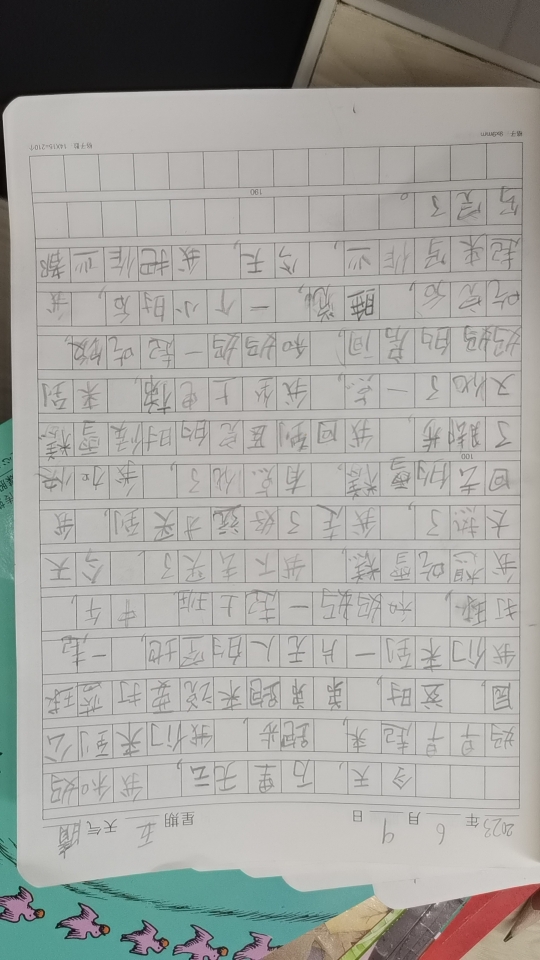 2023年6月9日 星期五 天气晴
今天，万里无云，我和妈
妈早早起来，跑步，我们来到公
园，这时，弟弟跑来说要打篮球
我们来到一片无人的空地，一起
打球，和妈妈一起上班，中午，
我想吃雪糕，我下去买了，今天
太热了，我走了好远才买到，我
回去的雪糕，有点化了，我加快
了脚步，我回到屋的时候雪糕
又化了一点，我坐上电梯，来到
妈妈的房间，和妈妈一起吃饭，
吃完后，睡觉，一个小时后，我
起来写作业，今天，我把作业都
写完了。
100
190
格子数 14X15=210个